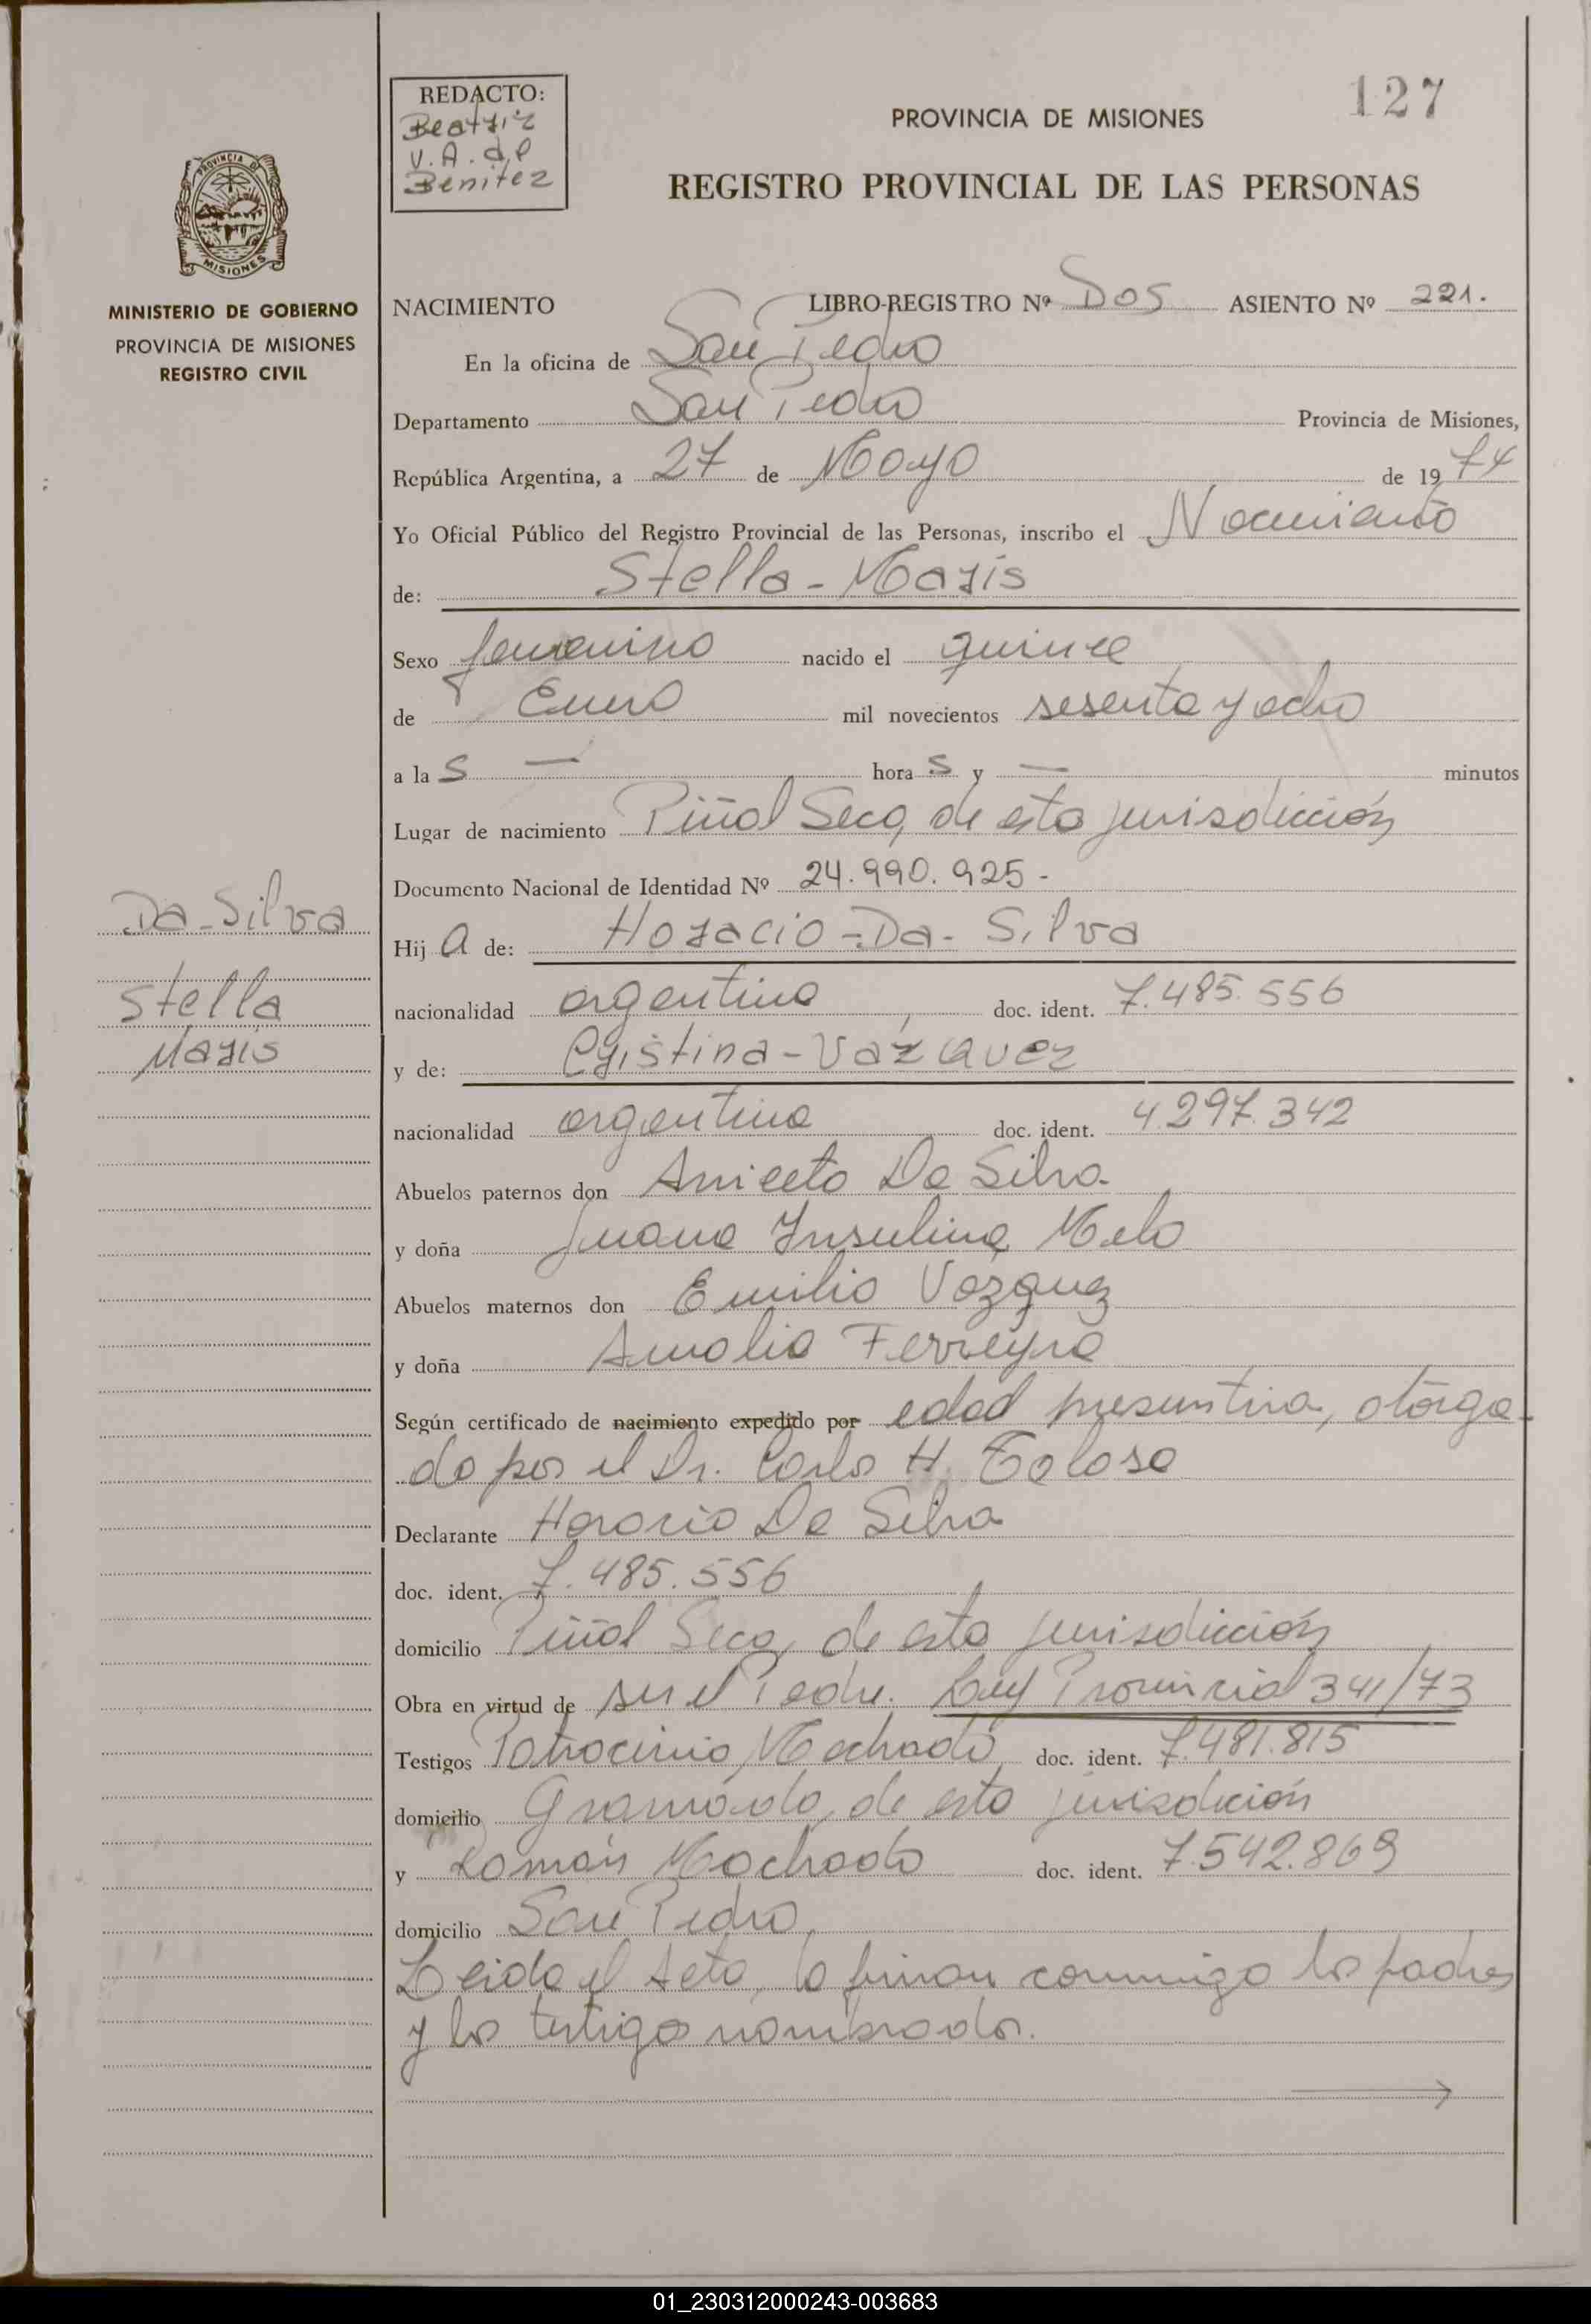 127
REDACTO:
Beatriz
V. A. de
Benitez
PROVINCIA DE MISIONES
REGISTRO PROVINCIAL DE LAS PERSONAS
PROVINCIA DE
MISIONES
MINISTERIO DE GOBIERNO
PROVINCIA DE MISIONES
REGISTRO CIVIL
Da-Silva
Stella
Maris
NACIMIENTO LIBRO-REGISTRO Nº Dos ASIENTO Nº 221.
En la oficina de San Pedro
Departamento San Pedro Provincia de Misiones,
República Argentina, a 27 de Mayo de 1974
Yo Oficial Público del Registro Provincial de las Personas, inscribo el Nacimiento
de: Stella-Maris
Sexo femenino nacido el quince
de Enero mil novecientos sesenta y ocho
a la s — hora s y — minutos
Lugar de nacimiento Piñal Seco, de esta jurisdicción
Documento Nacional de Identidad Nº 24.990.925-
Hij a de: Horacio-Da-Silva
nacionalidad argentina doc. ident. 7.485.556
y de: Cristina-Vazquez
nacionalidad argentina doc. ident. 4.297.342
Abuelos paternos don Aniceto Da Silva
y doña Juana Insulina Melo
Abuelos maternos don Emilio Vazquez
y doña Amalia Ferreyra
Según certificado de nacimiento expedido por edad presuntiva, otorga-
do por el Dr. Carlos H. Toloso
Declarante Horacio Da Silva
doc. ident. 7.485.556
domicilio Piñal Seco, de esta jurisdicción
Obra en virtud de ser el Padre. Ley Provincial 341/73
Testigos Patrocinio Machado doc. ident. 7.481.815
domicilio Gramado, de esta jurisdicción
y Román Machado doc. ident. 7.542.869
domicilio San Pedro,
Leida el Acta, la firman conmigo los padres
y los testigos nombrados.
01_230312000243-003683